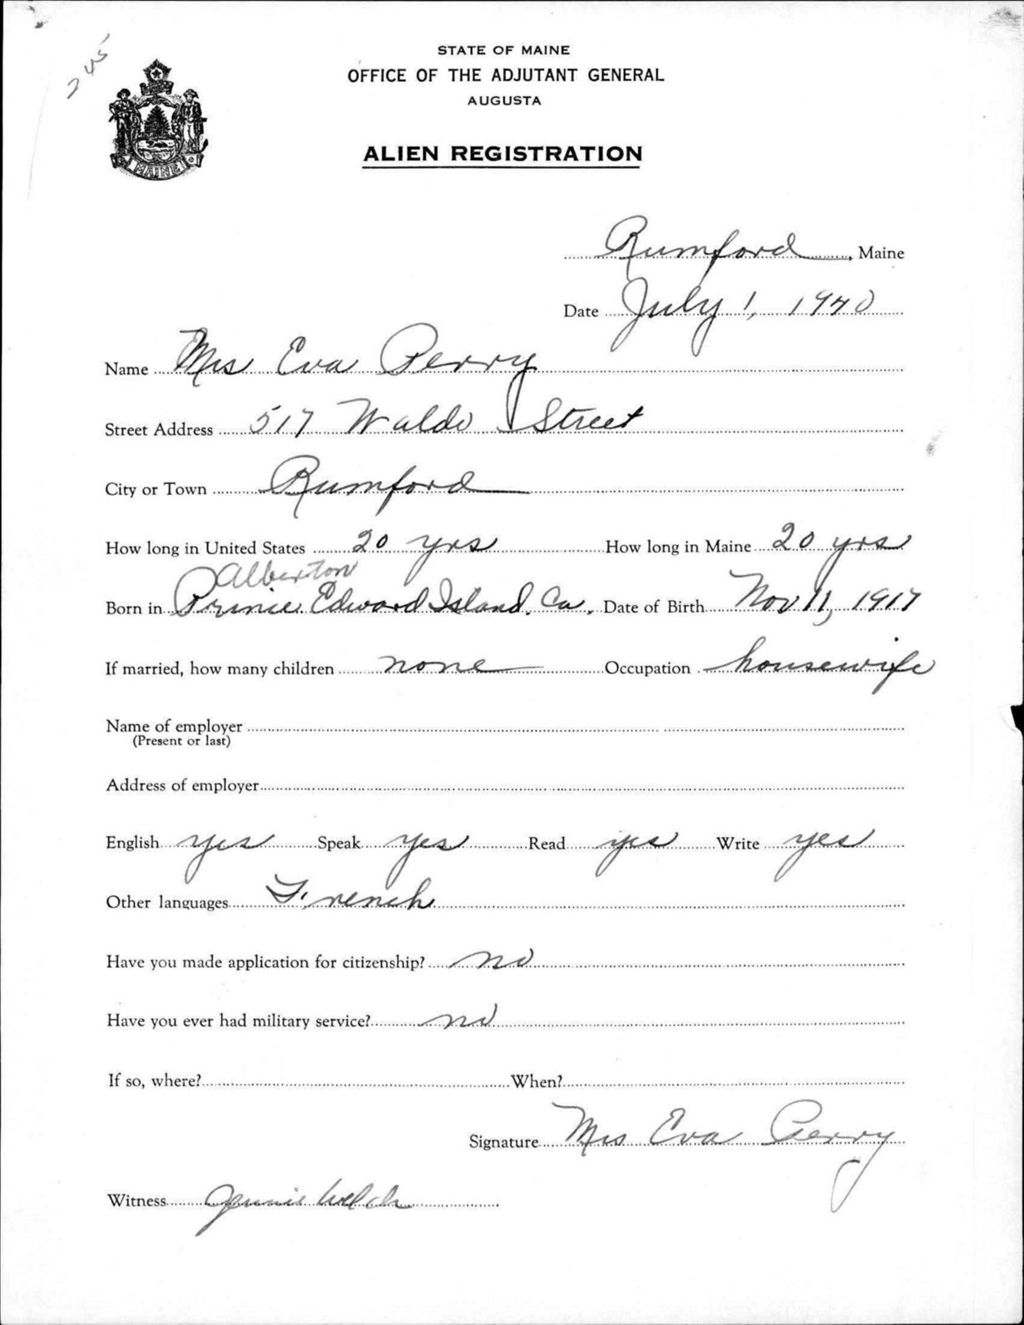 245
STATE OF MAINE
OFFICE OF THE ADJUTANT GENERAL
AUGUSTA
MAINE
ALIEN REGISTRATION
Rumford, Maine
Date July 1, 1940
Name Mrs Eva Perry
Street Address 517 Waldo Street
City or Town Rumford
How long in United States 20 yrs How long in Maine 20 yrs
Alberton
Born in Prince Edward Island, Ca. Date of Birth Nov 11, 1917
If married, how many children none Occupation housewife
Name of employer
(Present or last)
Address of employer
English yes Speak yes Read yes Write yes
Other languages French
Have you made application for citizenship? no
Have you ever had military service? no
If so, where? When?
Signature Mrs Eva Perry
Witness Welch